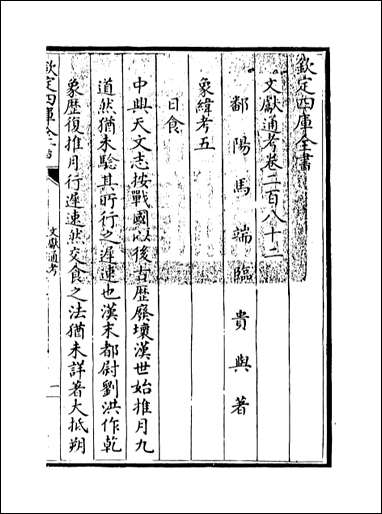 欽定四庫全書
文獻通考卷二百八十二
鄱陽馬端臨貴與著
象緯考五
日食
中興天文志按戰國以後古歷廢壞漢世始推月九
道然猶未驗其所行之遲速也漢末都尉劉洪作乾
象歷復推月行遲速然交食之法猶未詳著大抵朔
欽定四庫全書
文獻通考
一